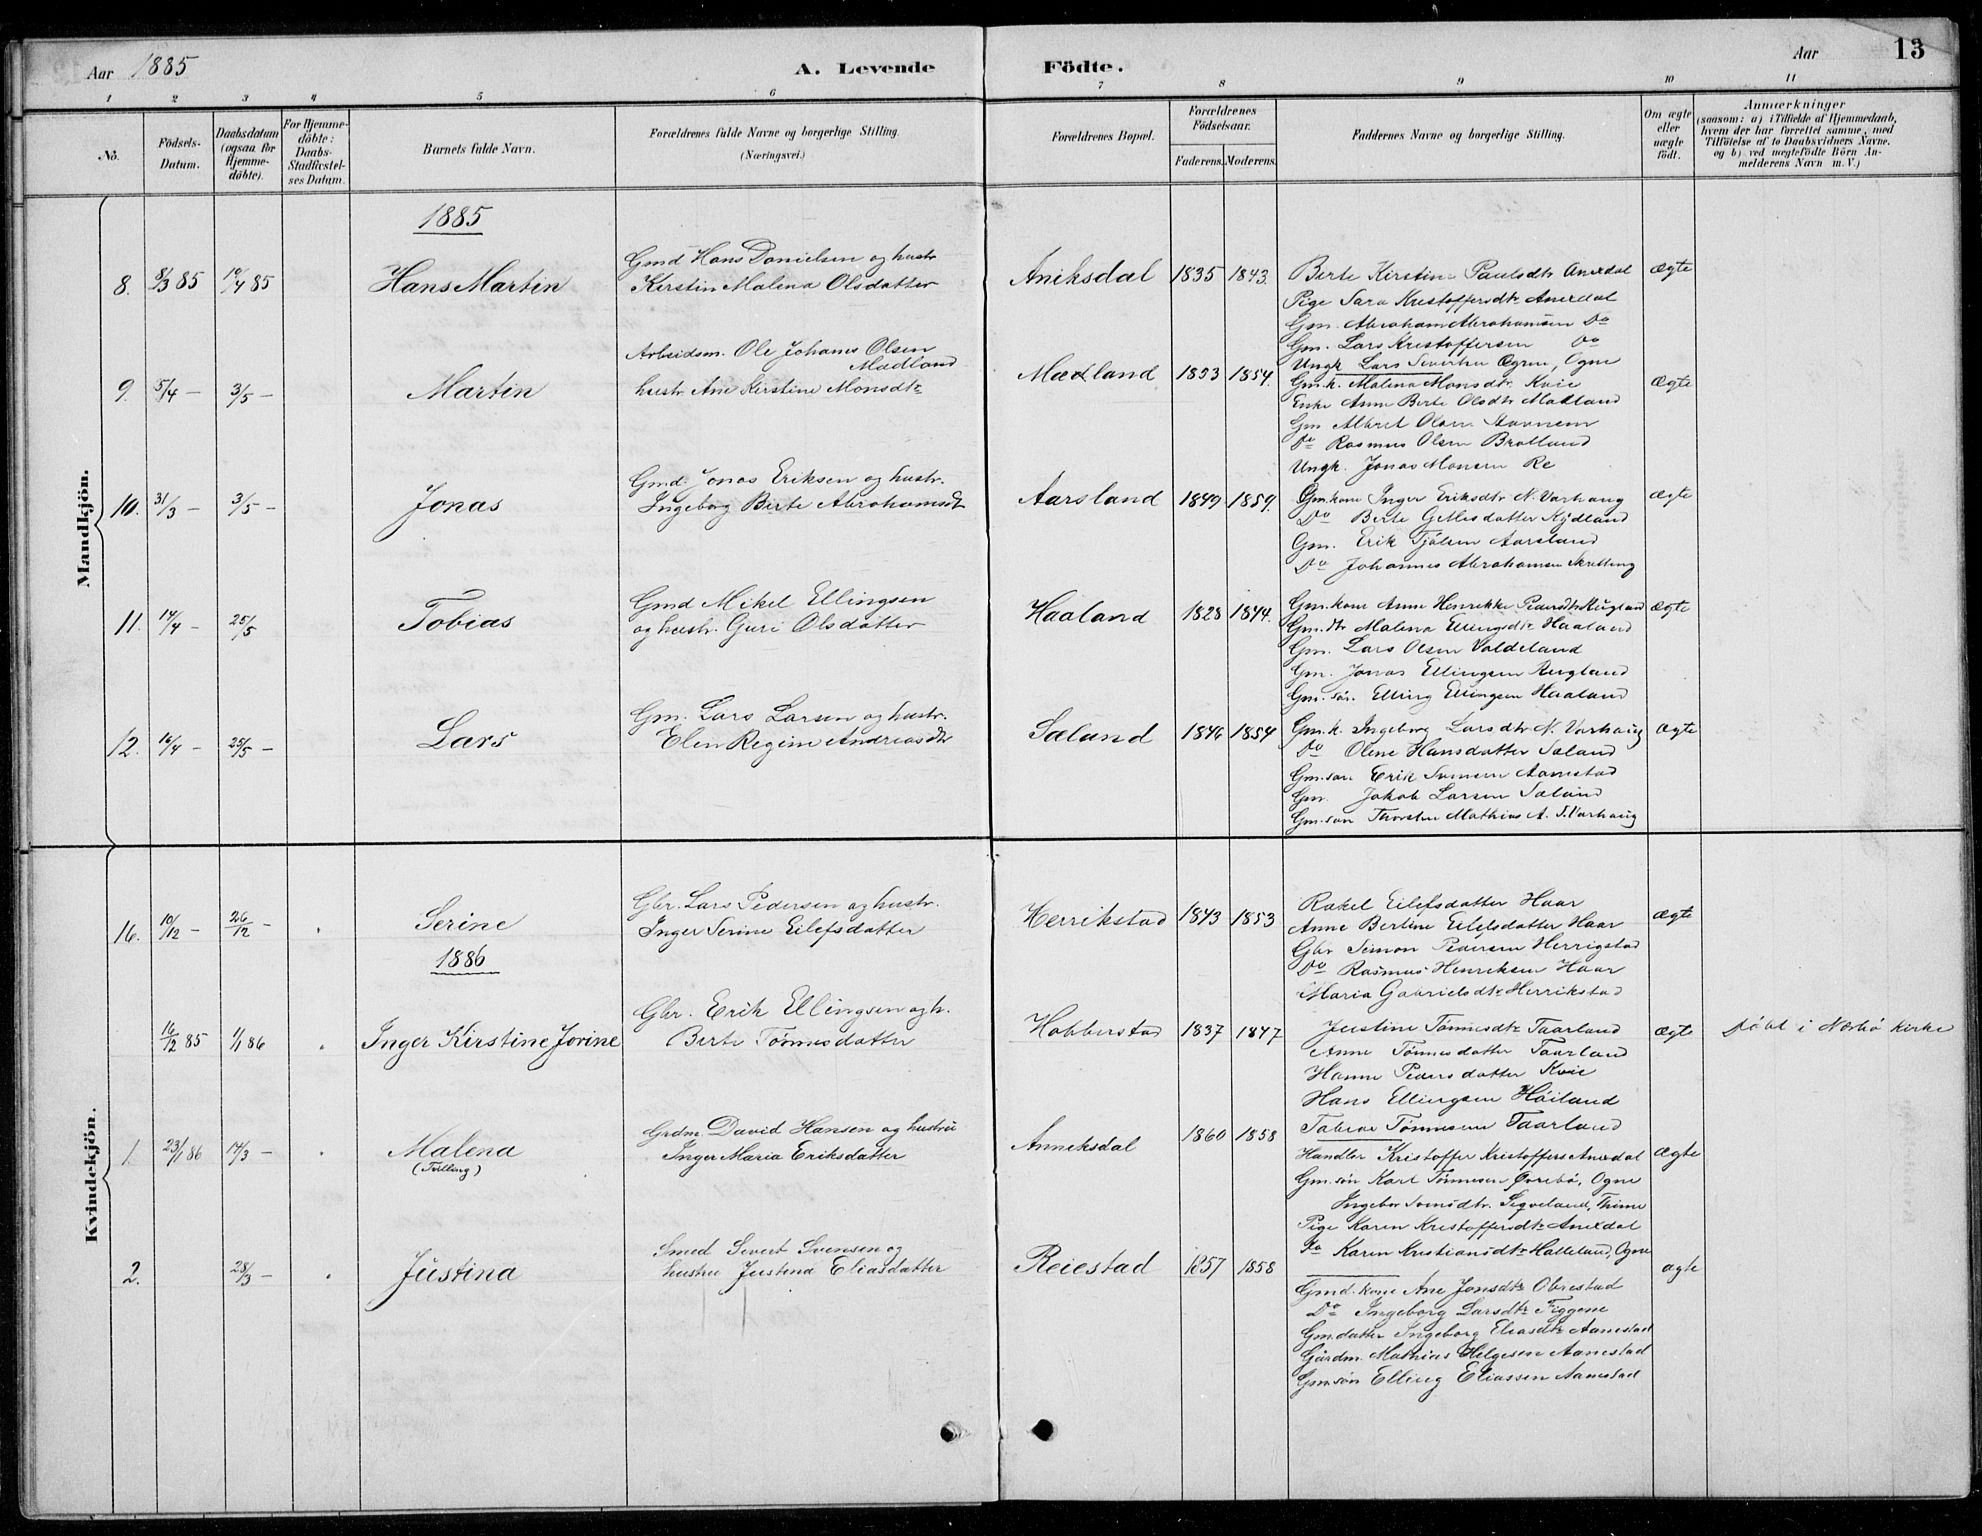 Aar 1885
A. Levende Födte.
Aar
13
1 2 3 4 5 6 7 8 9 10 11
No.
Födsels-Datum.
Daabsdatum (ogsaa for Hjemme-döbte).
For Hjemme-döbte: Daabs-Stadfæstelses Datum.
Barnets fulde Navn.
Forældrenes fulde Navne og borgerlige Stilling.
(Næringsvei.)
Forældrenes Bopæl.
Forældrenes Födselsaar.
Faderens. Moderens.
Faddernes Navne og borgerlige Stilling.
Om ægte eller uægte födt.
Anmærkninger
(saasom: a) i Tilfælde af Hjemmedaab, hvem der har forrettet samme, med Tilföielse af to Daabsvidners Navne. og b) ved uægtefödte Börn Anmelderens Navn m. V.)
Mandkjön.
1885
8. 8/3 85 19/4 85 Hans Martin
Gmd Hans Danielsen og hustr
Kirstin Malena Olsdatter
Aniksdal 1835 1843.
Berte Kirstine Paulsdtr Anixdal
Pige Sara Kristoffersdtr Anexdal
Gm. Abraham Abrahamsen Do
Gm. Lars Kristoffersen Do
Ungk Lars Sivertsen Ogne
ægte
9. 5/4 – 3/5 – Martin
Arbeidsm. Ole Johanes Olsen
Madland
hustr. Ane Kirstine Monsdtr
Madland 1853 1854.
Gm.k. Malena Monsdtr Kvie
Enke Anne Berte Olsdtr Madland
Gm Albret Olsen Stavnem
Do Rasmus Olsen Bratland
Ungk. Jonas Monsen Re
ægte
10. 31/3 – 3/5 – Jonas
Gmd. Jonas Eriksen og hustr.
Ingeborg Birte Abrahamsdt
Aarsland 1849 1859.
Gm.kone Inger Eriksdtr N. Varhaug
Do Berte Gellesdatter Kydland
Gm. Erik Tjölsen Aarsland
Do Johannes Abrahamsen Skretting
ægte
11. 14/4 – 25/5 Tobias
Gmd Mikel Ellingsen
og hustr. Guri Olsdatter
Haaland 1828 1844.
Gm.kone Anne Henrikke Pedersdtr Rugland
Gm.dtr Malena Ellingsdtr Haaland
Gm. Lars Olsen Valdeland
Gm. Jonas Ellingsen Rugland
Gm.sön. Elling Ellingsen Haaland
ægte
12. 16/4 – 25/5 – Lars
Gm. Lars Larsen og hustr.
Elen Regine Andreasdtr
Sæland 1846 1854
Gm.k. Ingeborg Larsdtr N. Varhaug
Do Olene Hansdatter Sæland
Gm.søn Erik Svensen Aanestad
Gm. Jakob Larsen Sæland
Gm.søn Thorsten Mathias A. S. Varhaug
ægte
Kvindekjön.
16. 10/12 – 26/12 – Serine
Gbr. Lars Pedersen og hustr.
Inger Serine Eilefsdatter
Herrikstad 1843 1853
Rakel Eilefsdatter Haar
Anne Bertine Eilefsdatter Haar
Gbr Simon Pedersen Herrigstad
Do Rasmus Henriksen Haar
Maria Gabrielsdtr Herrikstad
ægte
1886
16/12 85 1/1 86 Inger Kirstine Jorine
Gbr. Erik Ellingsen og h.
Berte Tönnesdatter
Hobberstad 1837 1847
Justine Tönnesdtr Taarland
Anne Tönnesdatter Taarland
Hanne Pedersdatter Kvie
Hans Ellingsen Höiland
Tobias Tönnesen Taarland
ægte
Döbt i Nærbö kirke
1. 23/1 86 14/3 – Malena
(Tvilling)
Grdm. David Hansen og hustru
Inger Maria Eriksdatter
Anneksdal 1860 1858
Handler Kristoffer Kristoffers Anexdal
Gm.sön Karl Tönnesen Övrebö, Ogne
Ingebor Svensdtr. Sigveland, Thime
Pige Karen Kristoffersdtr Anexdal
Do Karen Kristiansdtr Halleland, Ogne
ægte
2. 28/3 – Justina
Smed Sivert Svensen og
hustru Justina Eliasdatter
Reiestad 1857 1858
Gmd.kone Ane Jonsdtr Obrestad
Do Ingeborg Larsdtr Figgene
Gm.datter Ingeborg Eliasdtr Aanestad
Gårdm. Mathias Helgesen Aanestad
Gm.sön Elling Eliassen Aanestad
ægte